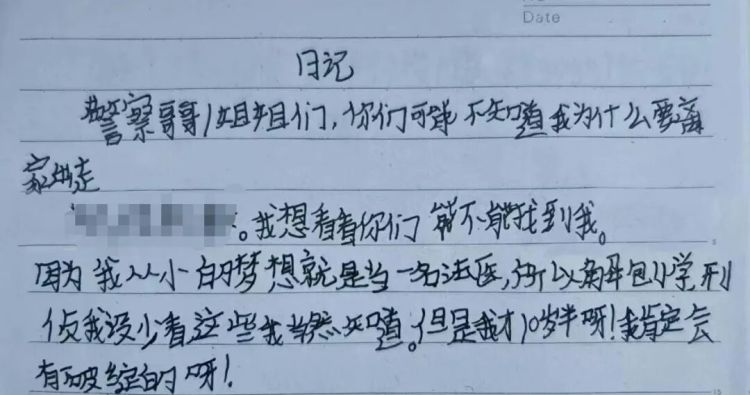 Date
日记
警察哥哥/姐姐们，你们可能不知道我为什么要离
家出走
。我想看看你们能不能找到我。
因为我从小的梦想就是当一名法医，所以解剖小学刑
侦我没少看这些我当然知道。但是我才10岁半呀！我肯定会
有破绽的呀！